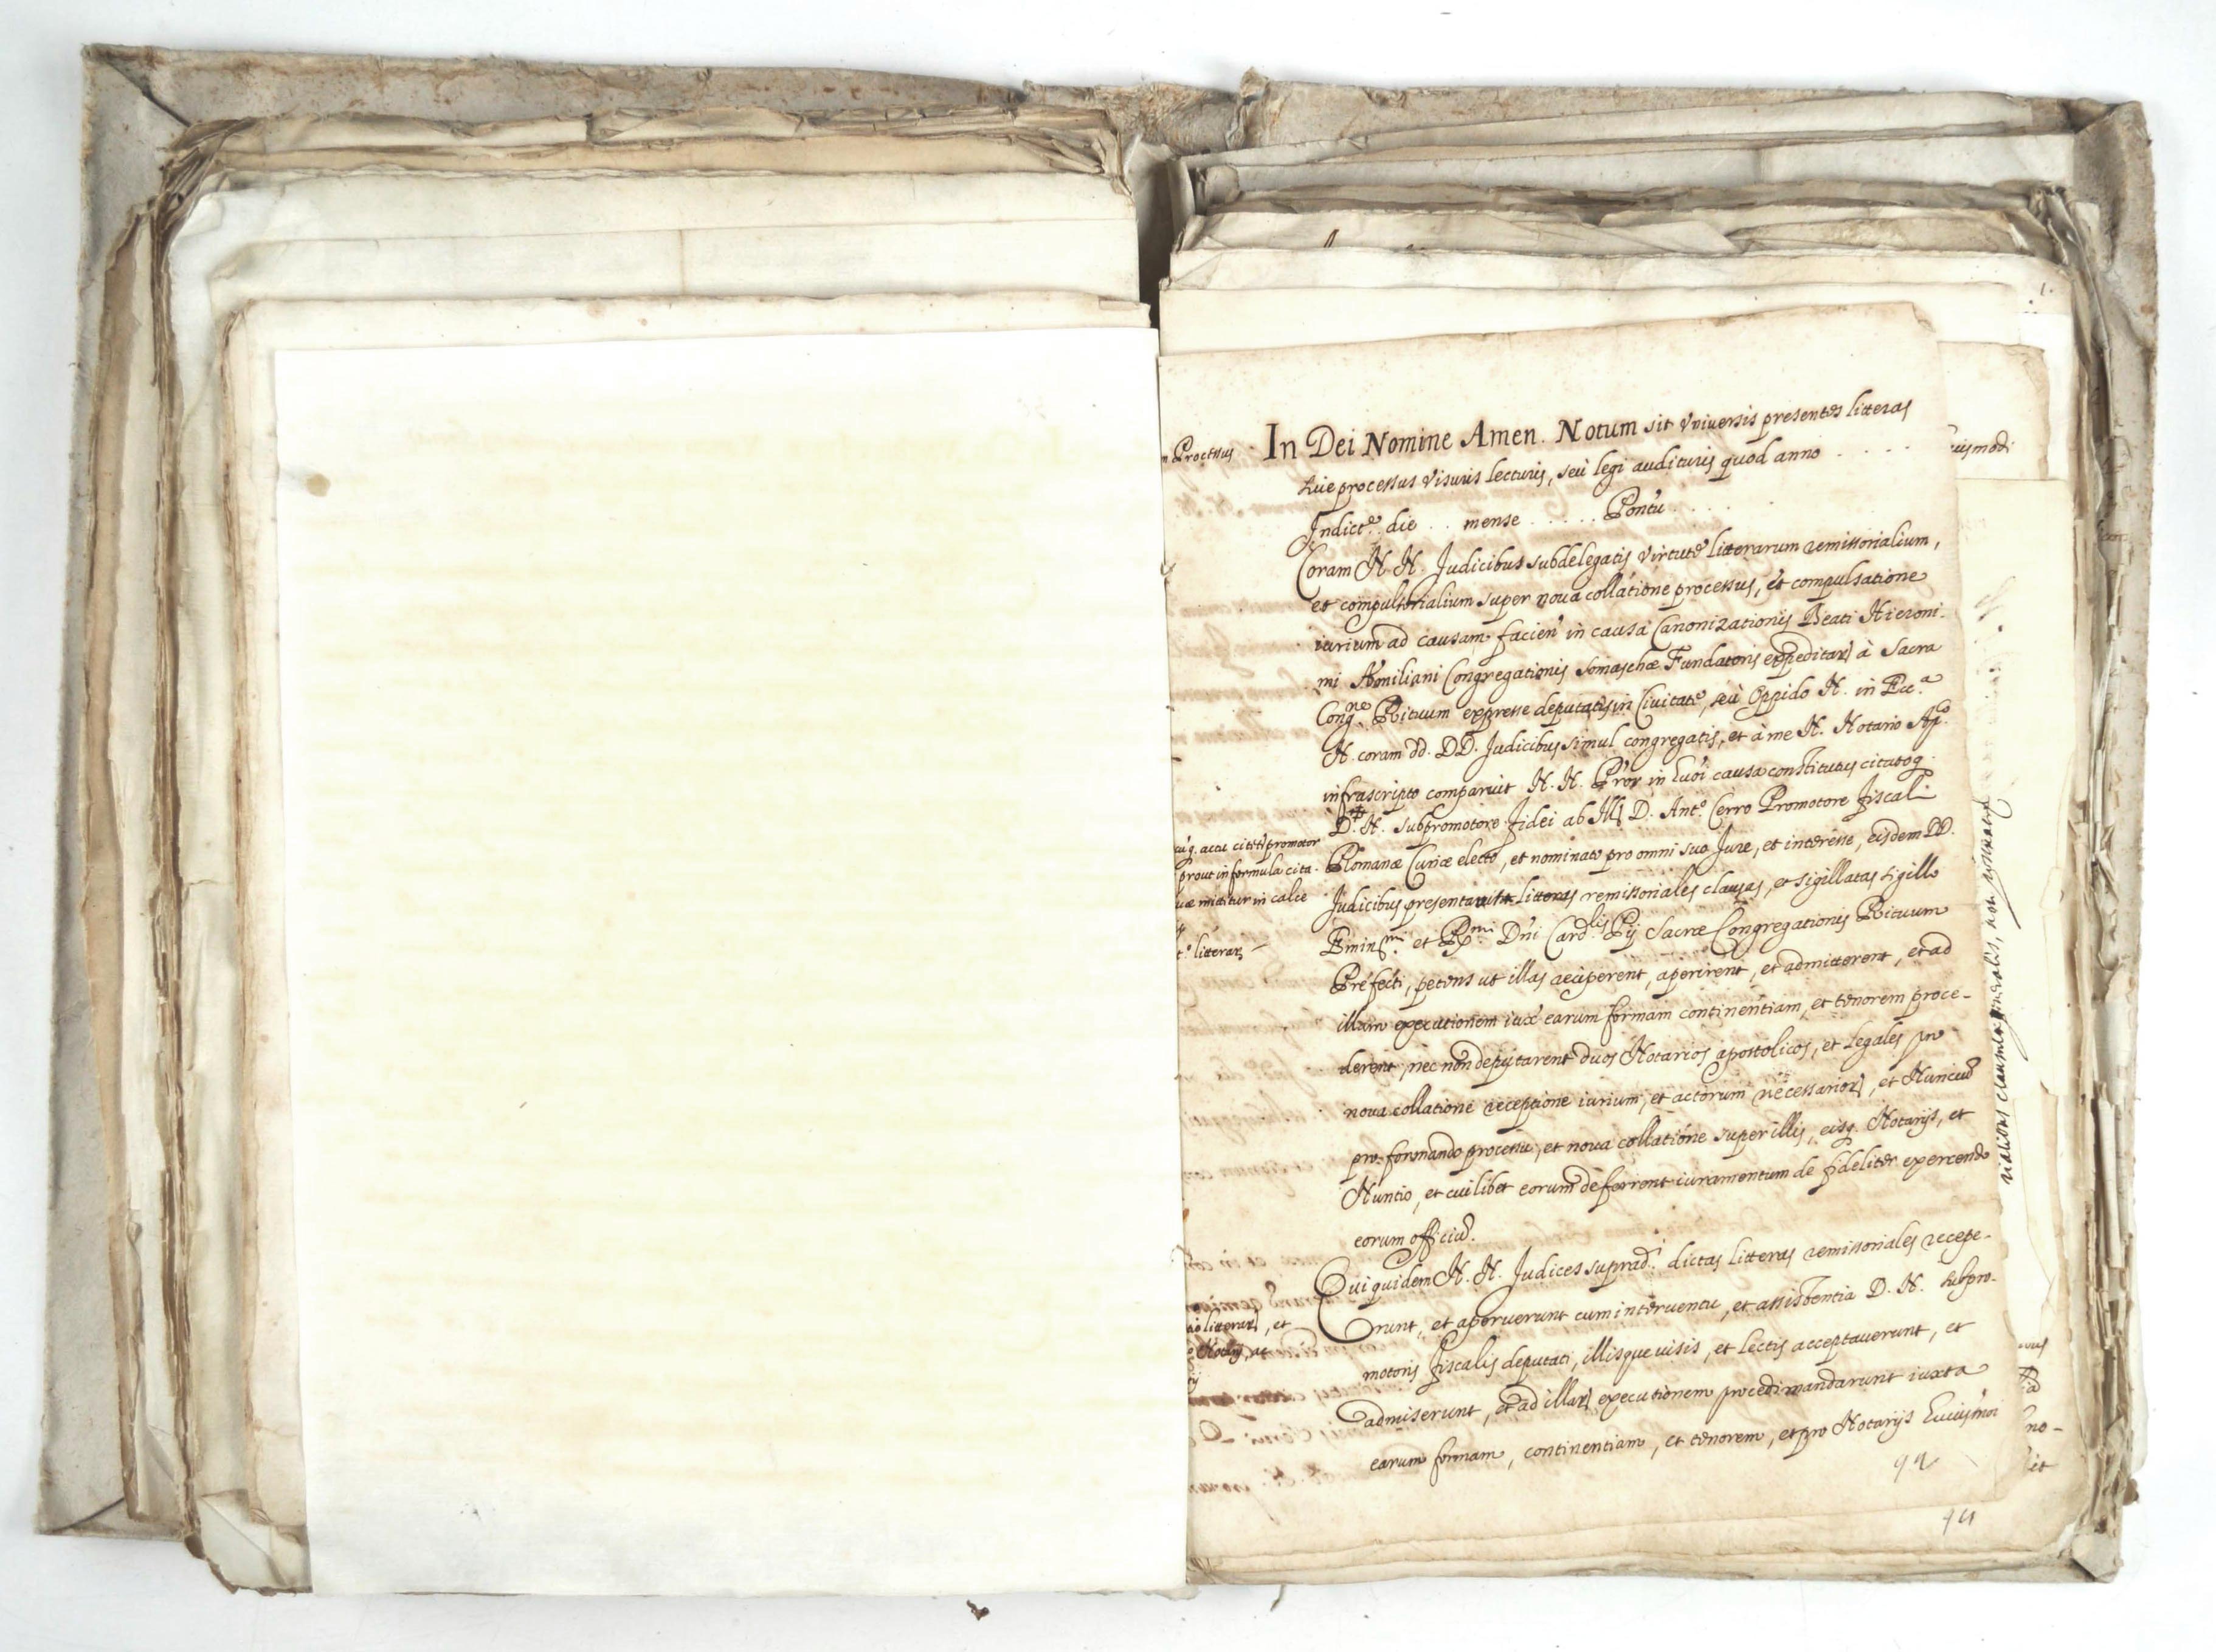 In Dei Nomine Amen. Notum sit Vniuersis presentes litteras
siue processus visuris lecturis, seù legi audituris quod anno . . . .
Indict.e die . . mense . . . . . Pontũ . . . .
Coram N. N. Judicibus subdelegatis virtute litterarum remissorialium,
et compulsorialium super noua collatione processus, et compulsatione
iurium ad causam facien in causa Canonizationis Beati Hieroni-
mi Æmiliani Congregationis Somaschæ Fundatoris expeditar à Sacra
Cong.ne Rituum expresse deputatis in Ciuitate, seù Oppido N. in Ecc.a
N. coram dd. DD. Judicibus simul congregatis, et à me N. Notario Ap.
infrascripto comparuit N. N. Pror in hmõi causa constitutus citatoq.
D. N. subpromotore fidei ab Ill D. Ant.o Cerro Promotore fiscali
Romanæ Curiæ electo, et nominato pro omni suo Jure, et interesse, eisdem DD.
Judicibus presentauit litteras remissoriales clausas, et sigillatas sigillo
Emin.mi et R.mi Dñi Card.lis Pij Sacræ Congregationis Rituum
Præfecti, petens ut illas reciperent, aperirent, et admitterent, et ad
illam executionem iux earum formam continentiam, et tenorem proce-
derent, nec non deputarent duos Notarios apostolicos, et Legales pro
noua collatione receptione iurium, et actorum necessarior, et Nuncium
pro formando processu, et noua collatione super illis, eisq. Notarijs, et
Nuntio, et cuilibet eorum deferrent iuramentum de fideliter exercendo
eorum officiũ.
Qui quidem N. N. Judices suprad. dictas litteras remissoriales recepe-
runt, et aperuerunt cum interuentu, et assistentia D. N. subpro-
motoris fiscalis deputati, illisque uisis, et lectis acceptauerunt, et
admiserunt, et ad illar executionem procedi mandarunt iuxta
earum formam, continentiam, et tenorem, et pro Notarijs huiusmõi
Processus
acta citet promotor
prout in formula cita.
mittitur in calce
litterar
litterar, et
uismodi
clausula